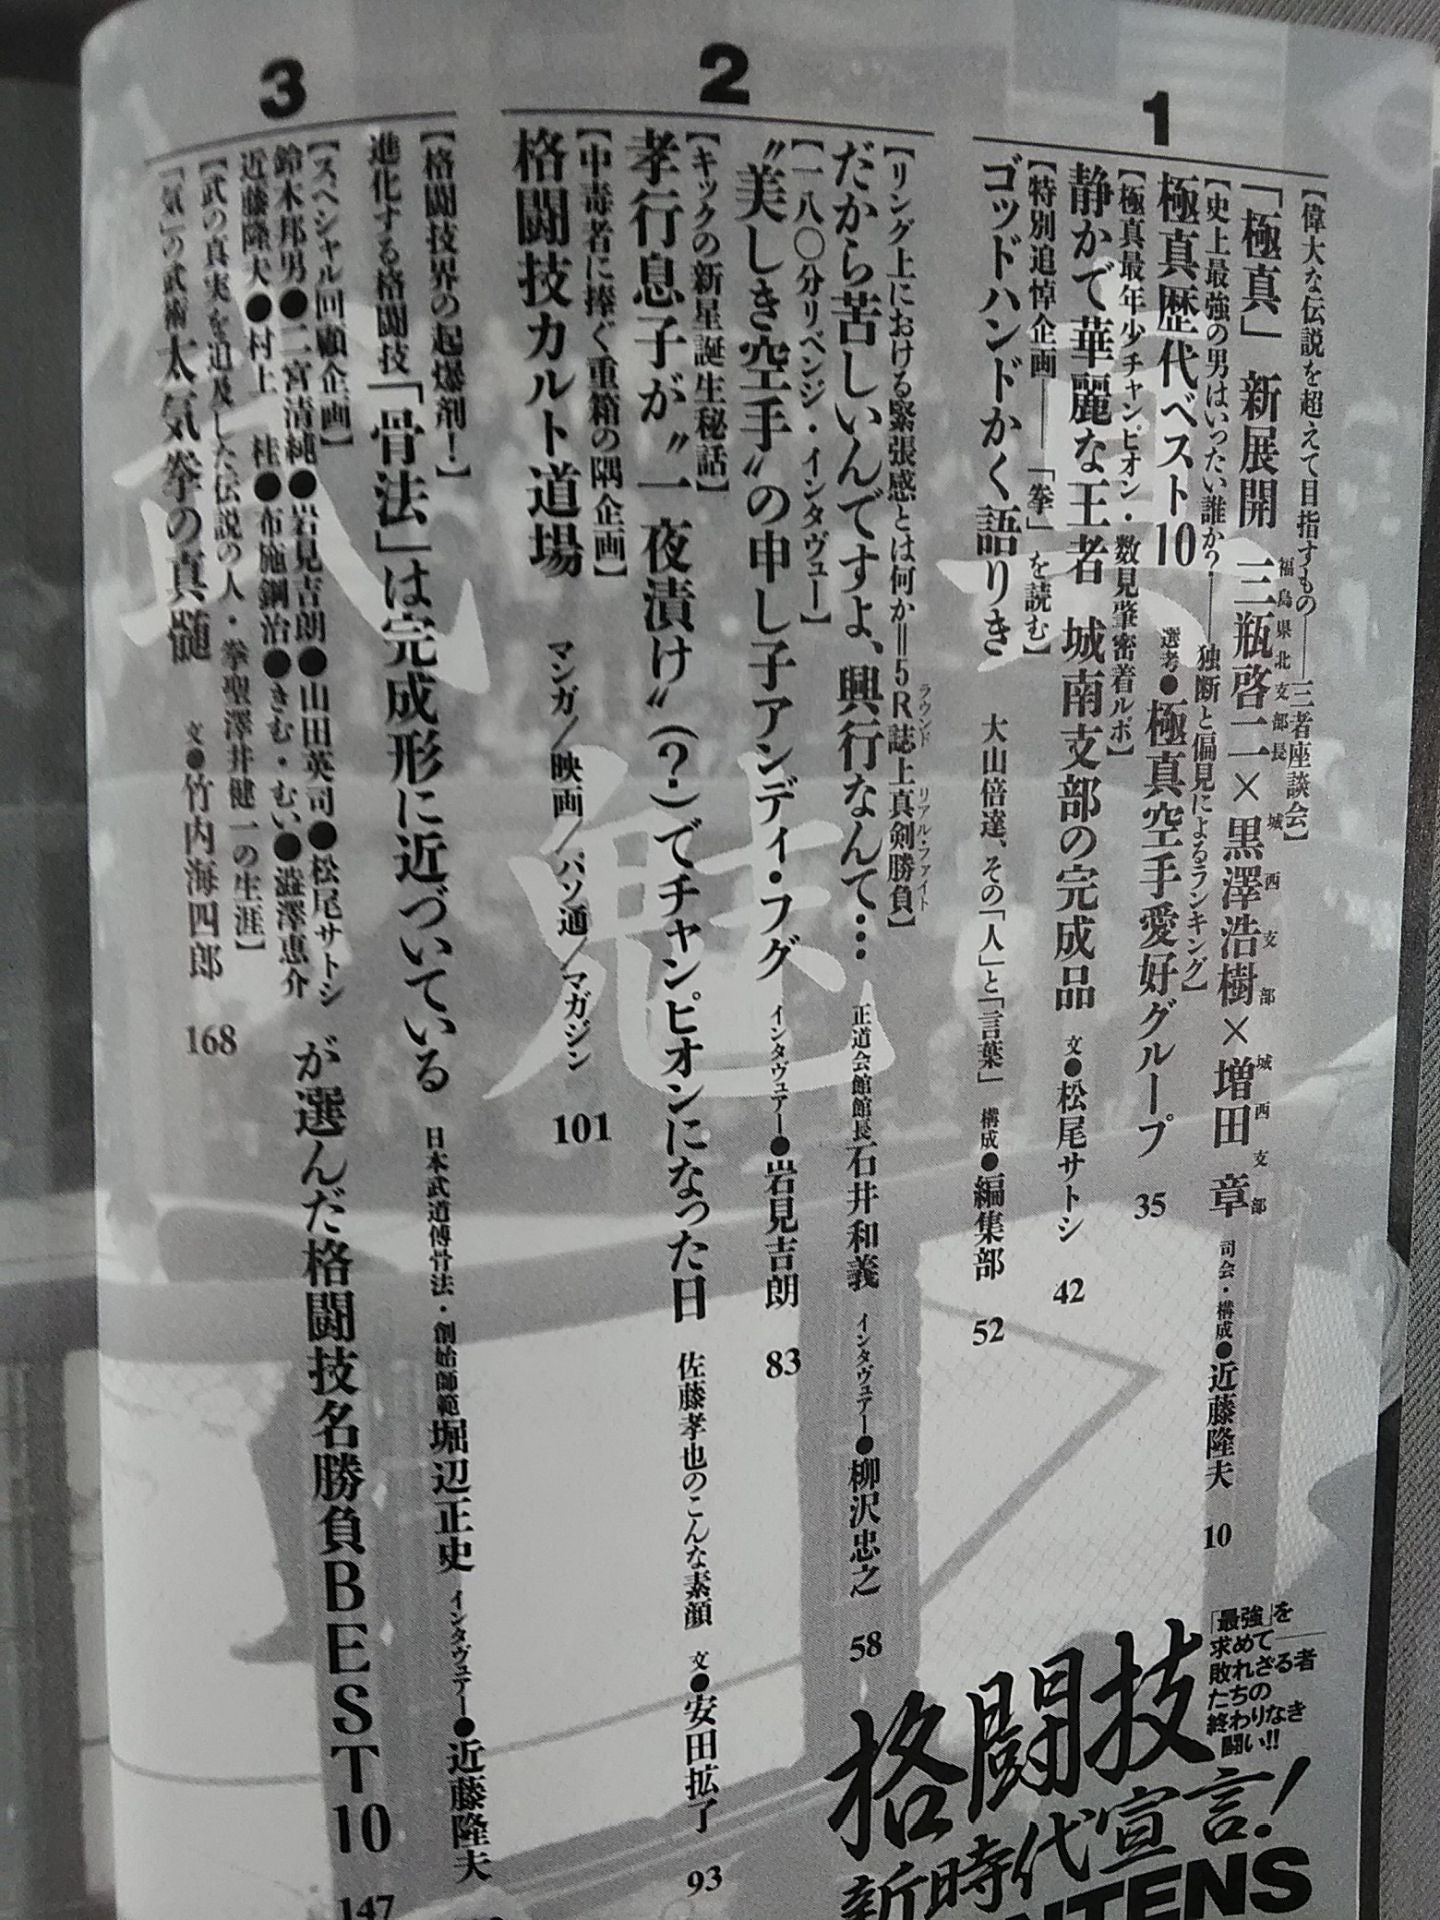 1
【偉大な伝説を超えて目指すもの――三者座談会】
「極真」新展開 三瓶啓二×黒澤浩樹×増田 章 司会・構成●近藤隆夫 10
福島県北支部長 城西支部 城西支部
【史上最強の男はいったい誰か?――独断と偏見によるランキング】
極真歴代ベスト10 選考●極真空手愛好グループ 35
【極真最年少チャンピオン・数見肇密着ルポ】
静かで華麗な王者 城南支部の完成品 文●松尾サトシ 42
【特別追悼企画――「拳」を読む】
ゴッドハンドかく語りき 大山倍達、その「人」と「言葉」 構成●編集部 52
2
【リング上における緊張感とは何か=5R誌上真剣勝負】
ラウンド リアル・ファイト
だから苦しいんですよ、興行なんて… 正道会館館長 石井和義 インタヴュアー●柳沢忠之 58
【一八〇分リベンジ・インタヴュー】
“美しき空手”の申し子アンディ・フグ インタヴュアー●岩見吉朗 83
【キックの新星誕生秘話】
孝行息子が“一夜漬け”(?)でチャンピオンになった日 佐藤孝也のこんな素顔 文●安田拡了 93
【中毒者に捧ぐ重箱の隅企画】
格闘技カルト道場 マンガ/映画/パソ通/マガジン 101
3
【格闘技界の起爆剤!】
進化する格闘技「骨法」は完成形に近づいている 日本武道傳骨法・創始師範 堀辺正史 インタヴュアー●近藤隆夫
【スペシャル回顧企画】
鈴木邦男●二宮清純●岩見吉朗●山田英司●松尾サトシ
近藤隆夫●村上 桂●布施鋼治●きむ・むい●澁澤恵介
が選んだ格闘技名勝負BEST10 147
【武の真実を追及した伝説の人・拳聖澤井健一の生涯】
「気」の武術 太気拳の真髄 文●竹内海四郎 168
武
魅
「最強」を
求めて
敗れざる者
たちの
終わりなき
闘い!!
格闘技
新時代宣言!